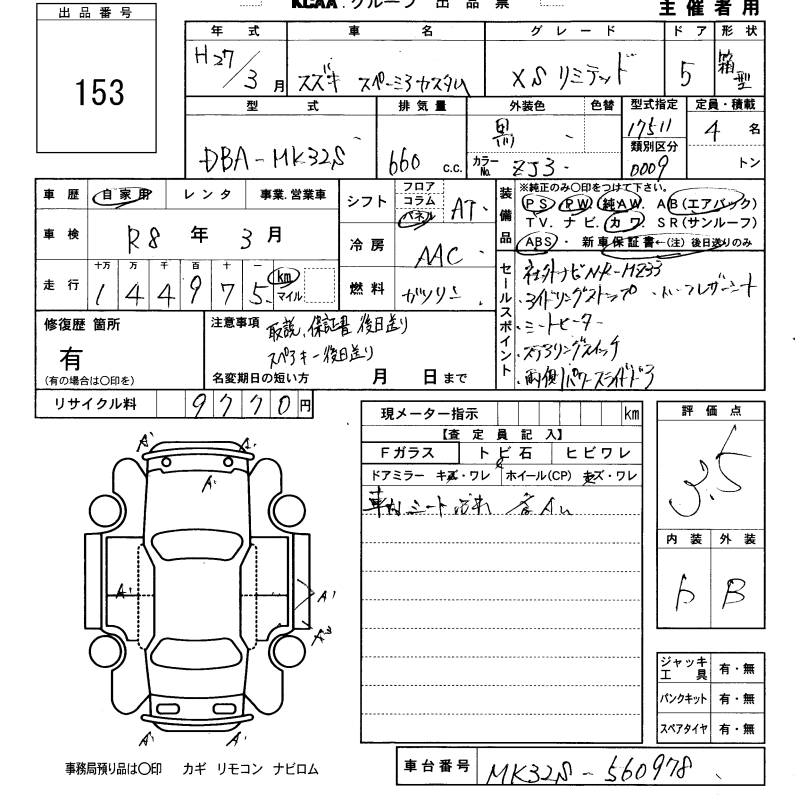 KCAA.グループ 出品票
主催者用
出品番号
153
年式 車名 グレード ドア 形状
H27/3月 スズキ スペーシアカスタム XSリミテッド 5 箱型
型式 排気量 外装色 色替 型式指定 定員・積載
DBA-MK32S 660 c.c. 黒 カラーNo. ZJ3 17511 類別区分 0009 4名 トン
車歴 自家用 レンタ 事業.営業車
シフト フロア コラム パネル AT
装備品 ※純正のみ〇印をつけて下さい。
PS. PW. 純AW. AB(エアバック)
TV. ナビ. カワ. SR(サンルーフ)
ABS. 新車保証書←(注)後日送りのみ
車検 R8年3月
冷房 AAC
走行 十万 万 千 百 十 一
144975 km マイル
燃料 ガソリン
セールスポイント
社外ナビNR-MZ33
・アイドリングストップ ・ハーフレザーシート
・シートヒーター
・ステアリングスイッチ
・両側パワースライドドア
修復歴 箇所
有
(有の場合は〇印を)
注意事項 取説、保証書後日送り
スペアキー後日送り
名変期日の短い方 月 日まで
リサイクル料 9770円
現メーター指示 km
【査定員記入】
Fガラス トビ石 ヒビワレ
ドアミラー キズ・ワレ ホイール(CP) キズ・ワレ
車内シート汚れ
評価点
3.5
内装 外装
B
A' A'
A'
A' A'
A' A'
ジャッキ工具 有・無
パンクキット 有・無
スペアタイヤ 有・無
事務局預り品は〇印 カギ リモコン ナビロム
車台番号 MK32S-560978